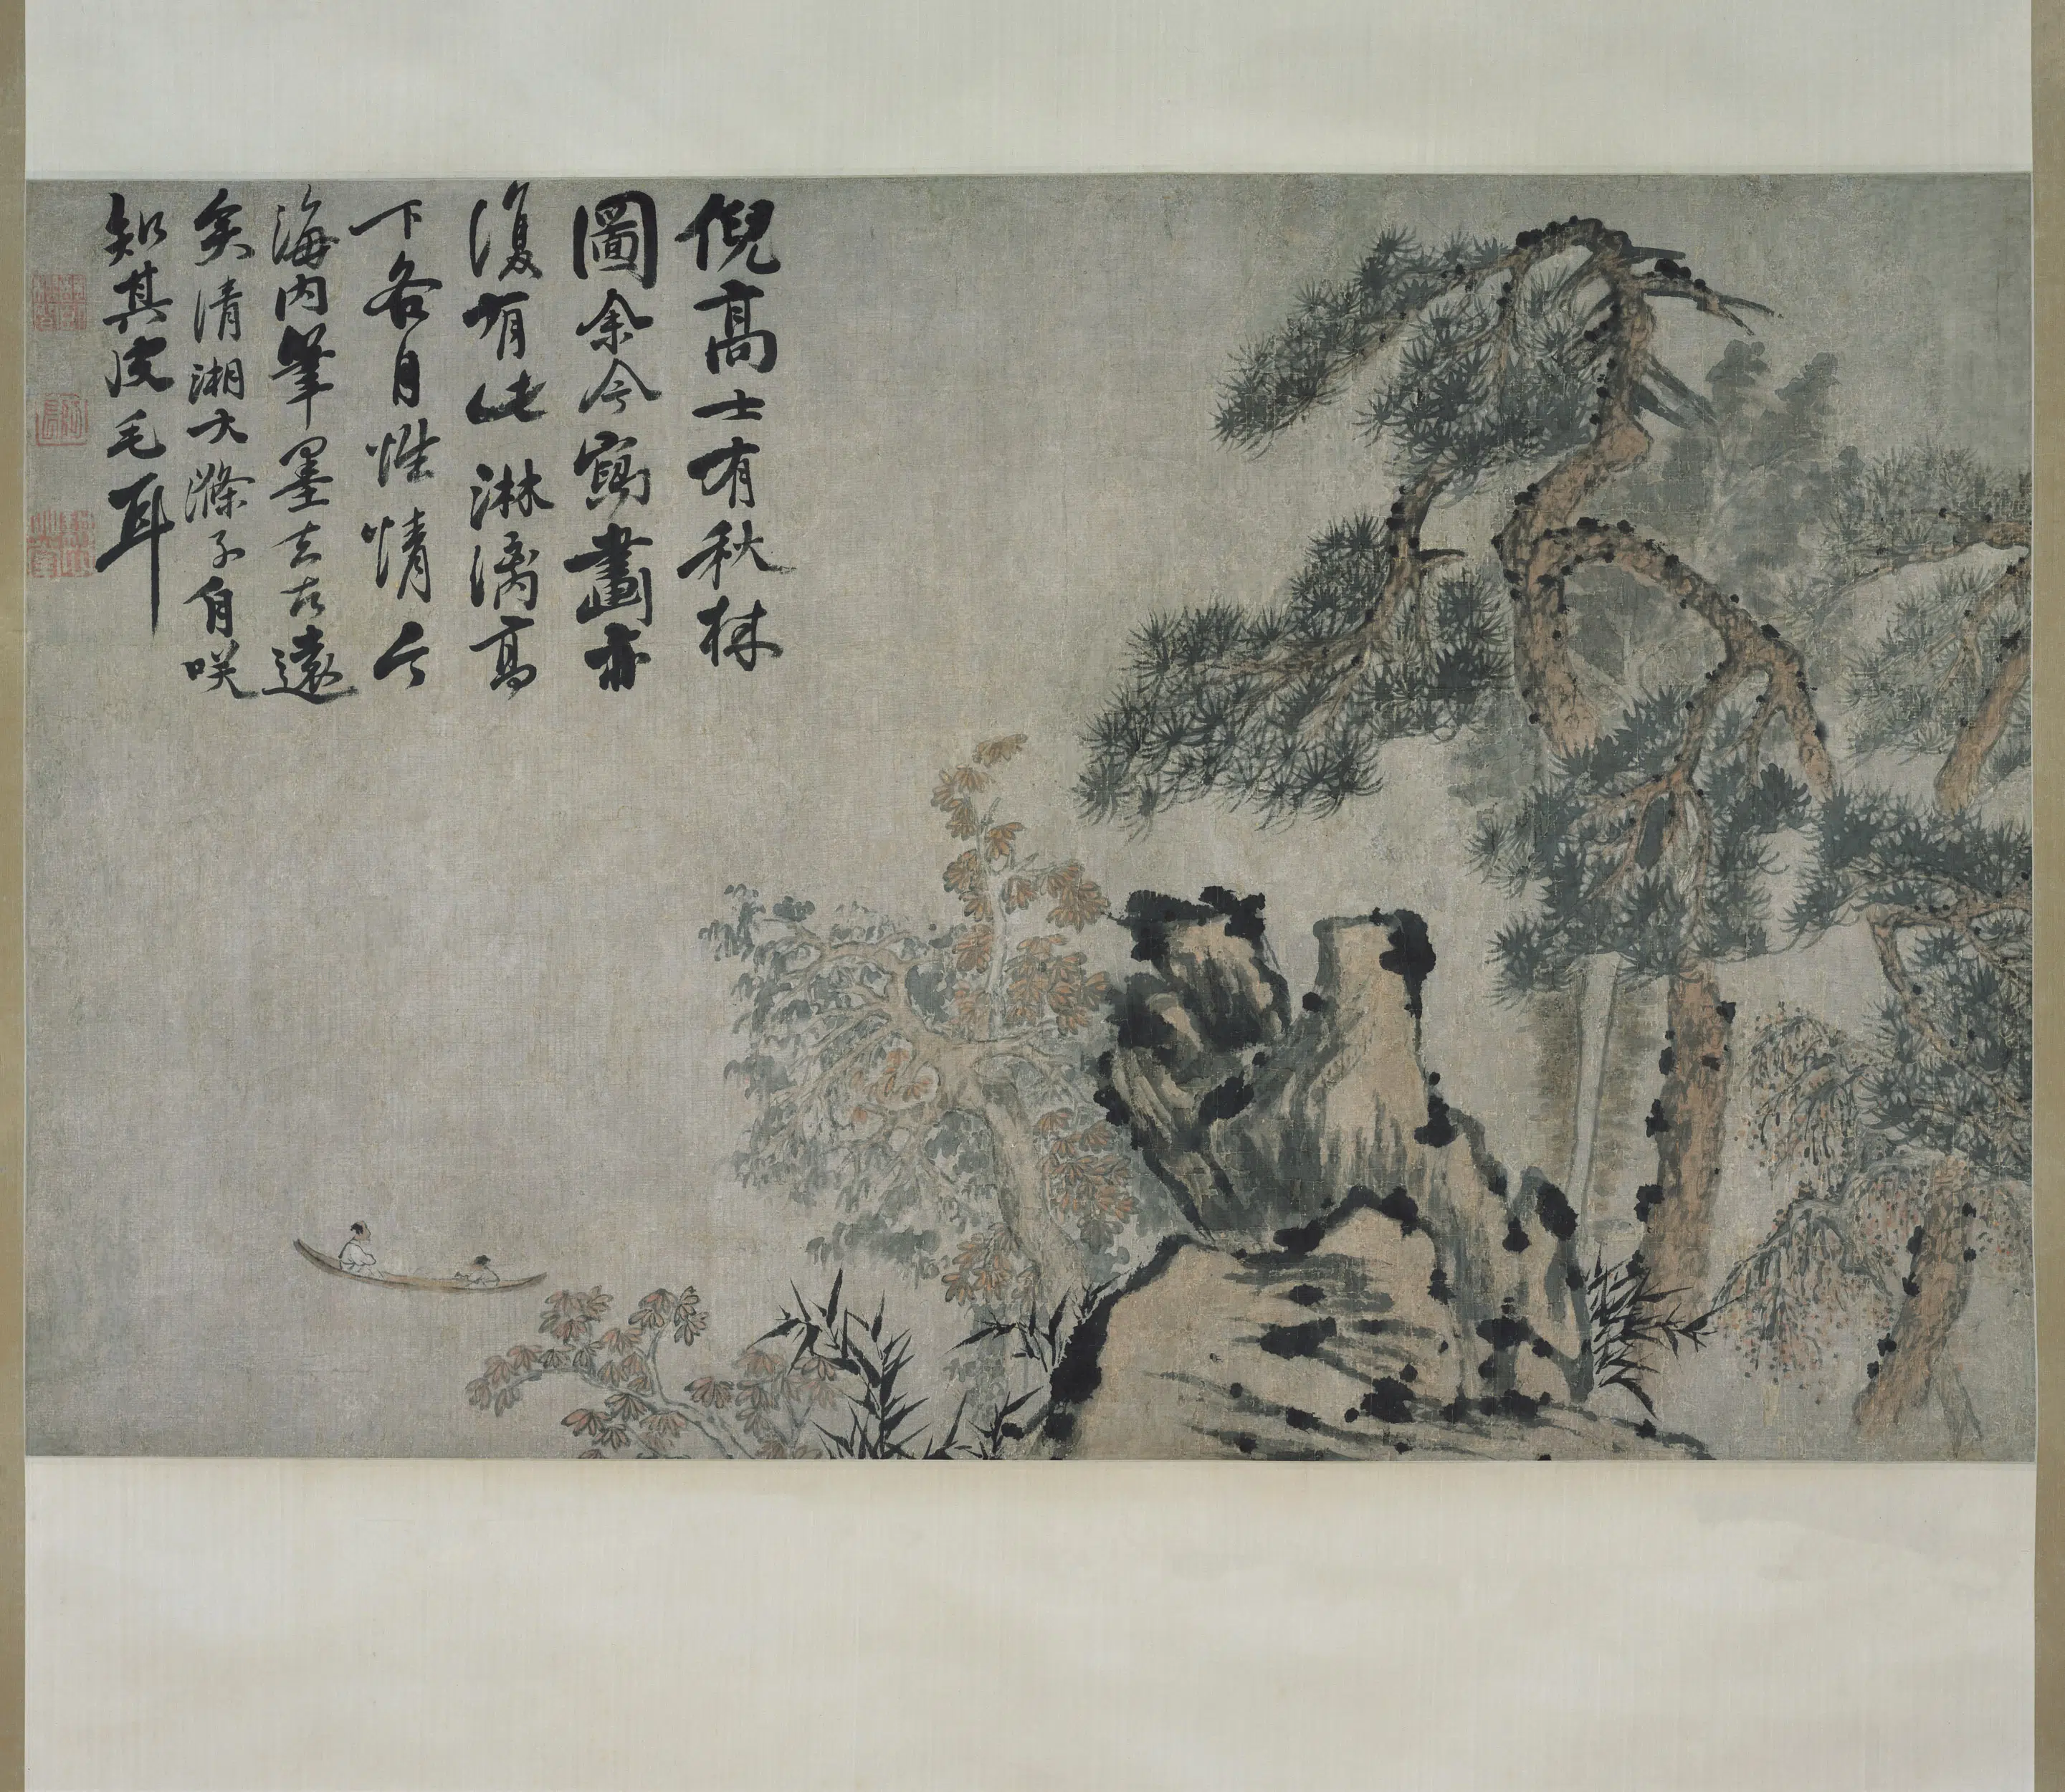 倪高士有秋林
圖余今寫畫亦
復有此淋漓高
下各自性情今
海内筆墨去古遠
矣清湘大滌子自咲
知其皮毛耳